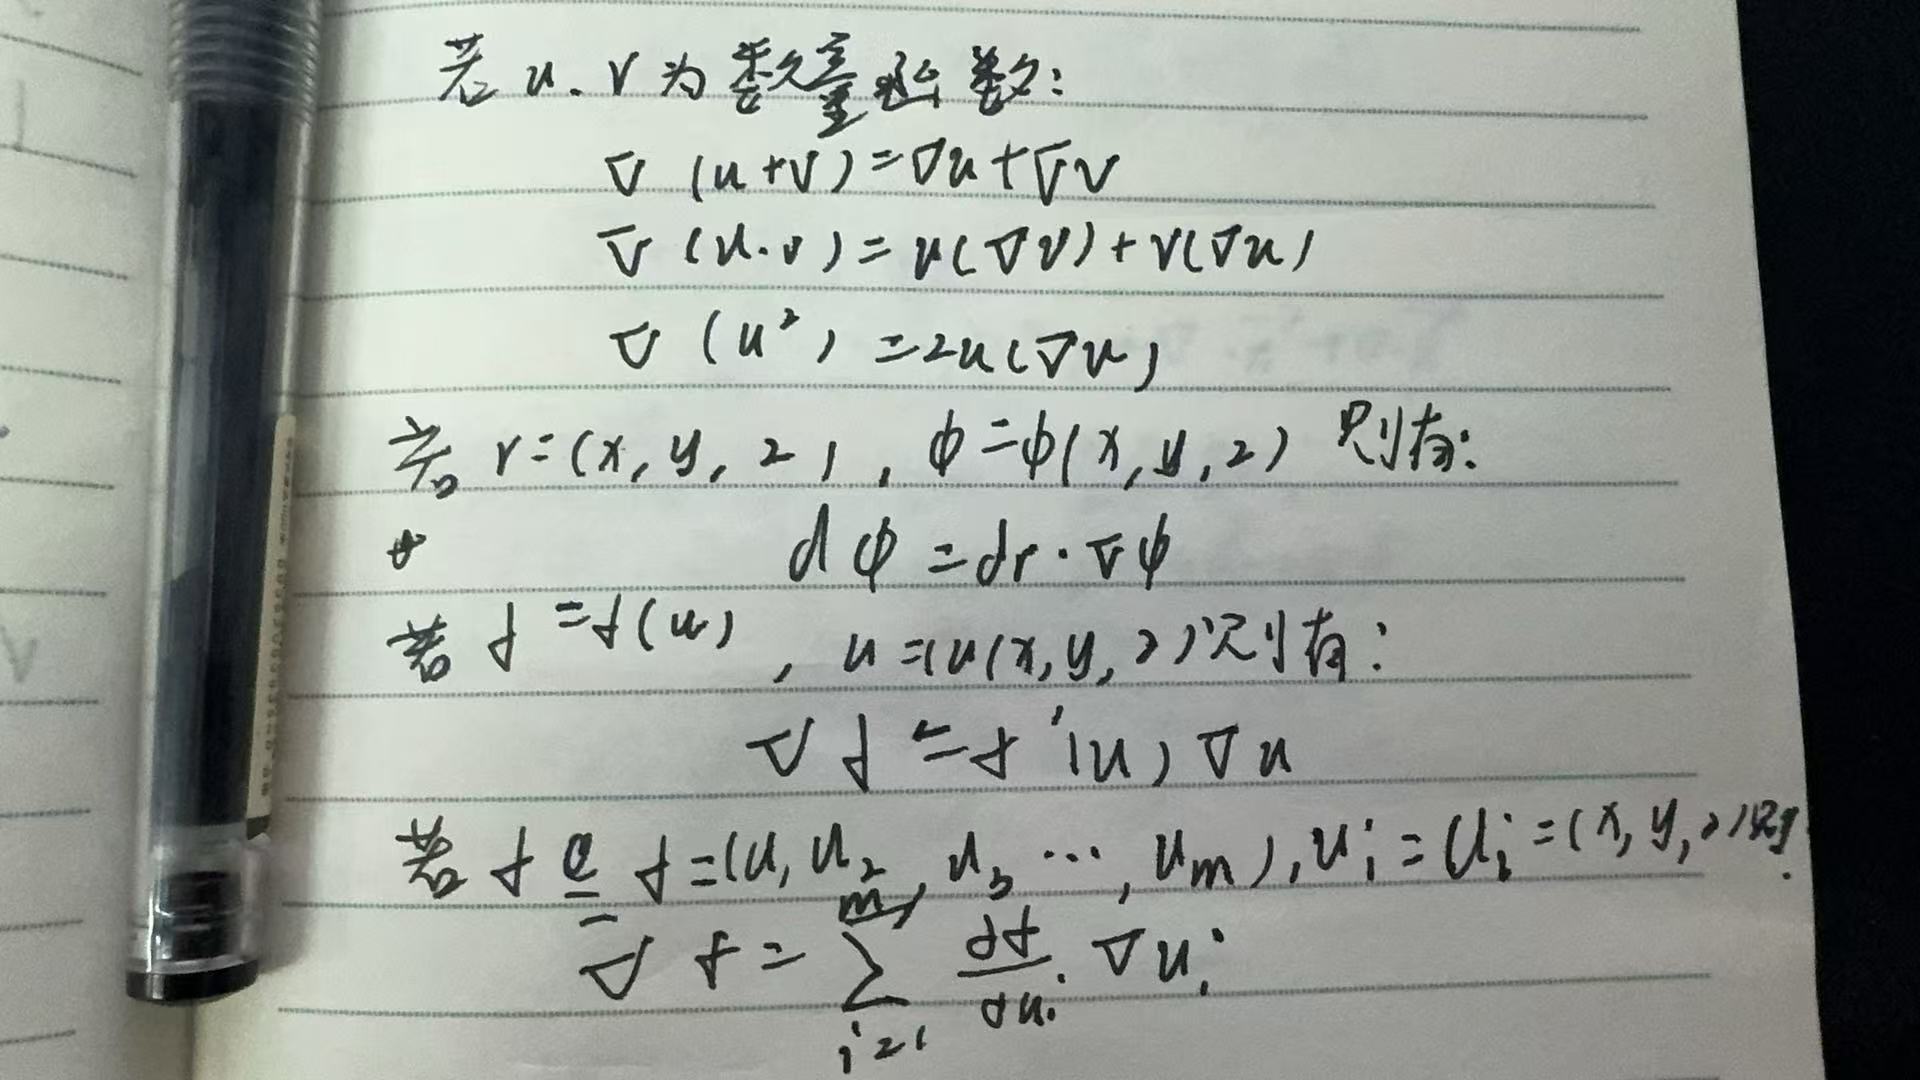 若 u、v 为数量函数:
∇ (u+v)=∇u+∇v
∇ (u·v)=u(∇v)+v(∇u)
∇ (u²)=2u(∇u)
若 r=(x,y,z), φ=φ(x,y,z) 则有:
dφ=dr·∇φ
若 f=f(u), u=(u(x,y,z)则有:
∇f=f'(u)∇u
若 f f=(u, u₂, u₃ ···, uₘ), uᵢ=uᵢ=(x,y,z)则
∇f=∑ᵢ₌₁ᵐ ∂f/∂uᵢ ∇uᵢ